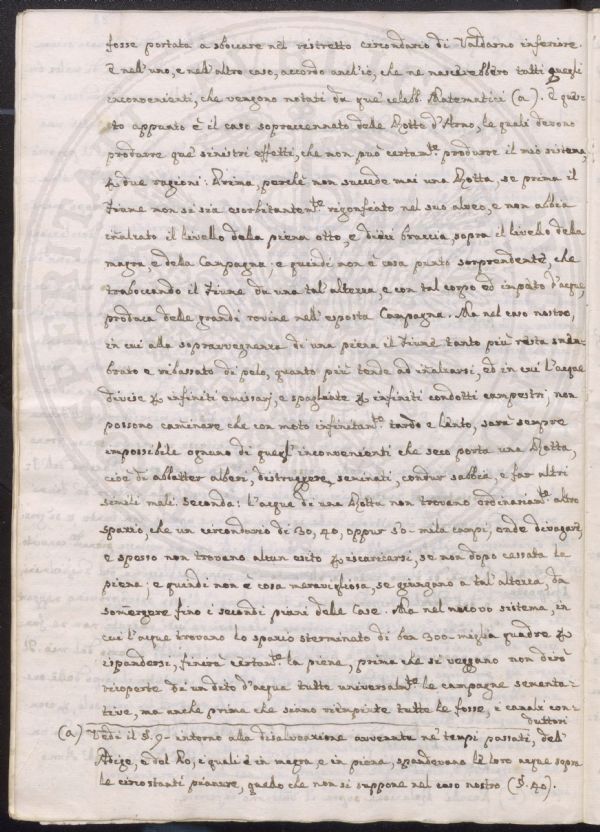 fosse portata a sboccare nel restretto circondario di Valdarno inferiore.
E nell'uno, e nell'altro caso, accordo anch'io, che ne nascerebbero tutti quegli
inconvenienti, che vengono notati da que' celebb. Matematici (a). E que-
sto appunto è il caso sopraccennato delle Rotte d'Arno, le quali devono
produrre que' sinistri effetti, che non può certam.te produrre il mio sistema,
p due ragioni: Prima, perchè non succede mai una Rotta, se prima il
Fiume non si sia esorbitantem.te rigonfiato nel suo alveo, e non abbia
inalzato il livello della piena otto, e dieci braccia sopra il livello della
magra, e della Campagna; e quindi non è cosa punto sorprendente, che
traboccando il Fiume da una tal'altezza, e con tal corpo ed impeto d'acque,
produca delle grandi rovine nell'esposta Campagna. Ma nel caso nostro,
in cui alla sopravvegnenza di una piena il Fiume tanto più resta smem-
brato e ribassato di pelo, quanto più tende ad inalzarsi, ed in cui l'acque
divise p infiniti emissarj, e spagliate p infiniti condotti campestri, non
possono caminare che con moto infinitam.te tardo e lento, sarà sempre
impossibile ognuno di quegl'inconvenienti che seco porta una Rotta,
cioè di abbatter alberi, distruggere seminati, condur sabbia, e far altri
simili mali. Seconda: l'acque di una Rotta non trovano ordinariam.te altro
spazio, che un circondario di 30, 40, oppur 50 mila campi, onde divagarsi,
e spesso non trovano alcun esito p iscaricarsi, se non dopo cessata la
piena; e quindi non è cosa meravigliosa, se giungano a tal'altezza da
somergere fino i secondi piani delle Case. Ma nel nuovo sistema, in
cui l'acque trovano lo spazio sterminato di ben 300 miglia quadre p
ispandersi, finirà certam.te la piena, prima che si veggano non dirò
ricoperte di un dito d'acqua tutte universalm.te le campagne sementa-
tive, ma anche prima che siano riempiute tutte le fosse, e canali con
duttori
(a) Vedi il §. 9 intorno alla disalveazione avvenuta ne' tempi passati, dell'
Adige, e del Po, i quali è in magra, e in piena, spandevano le loro acque sopra
le circostanti pianure, quello che non si suppone nel caso nostro (§. 40).